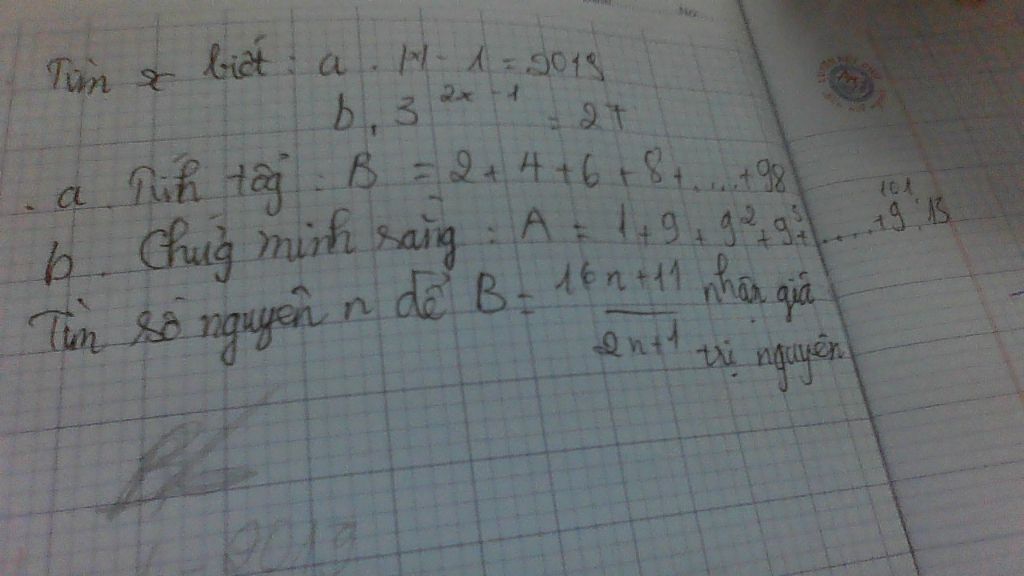 Tìm x biết : a . |x| - 1 = 2019
b, 3^{2x - 1} = 27
. a . Tính tổg : B = 2 + 4 + 6 + 8 + ..... + 98
b . Chứg minh rằg : A = 1 + 9 + 9^2 + 9^3 + ..... + 9^{101} : 13
Tìm số nguyên n để B = \frac{16n+11}{2n+1} nhận giá
trị nguyên